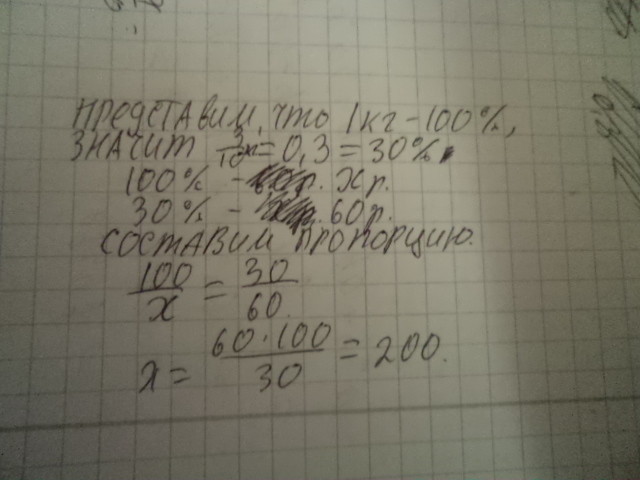 ПРЕДСТАВИМ, ЧТО 1кг - 100%,
ЗНАЧИТ 3/10 = 0,3 = 30%.
100% - хр.
30% - 60р.
СОСТАВИМ ПРОПОРЦИЮ.
100/x = 30/60.
x = 60·100/30 = 200.